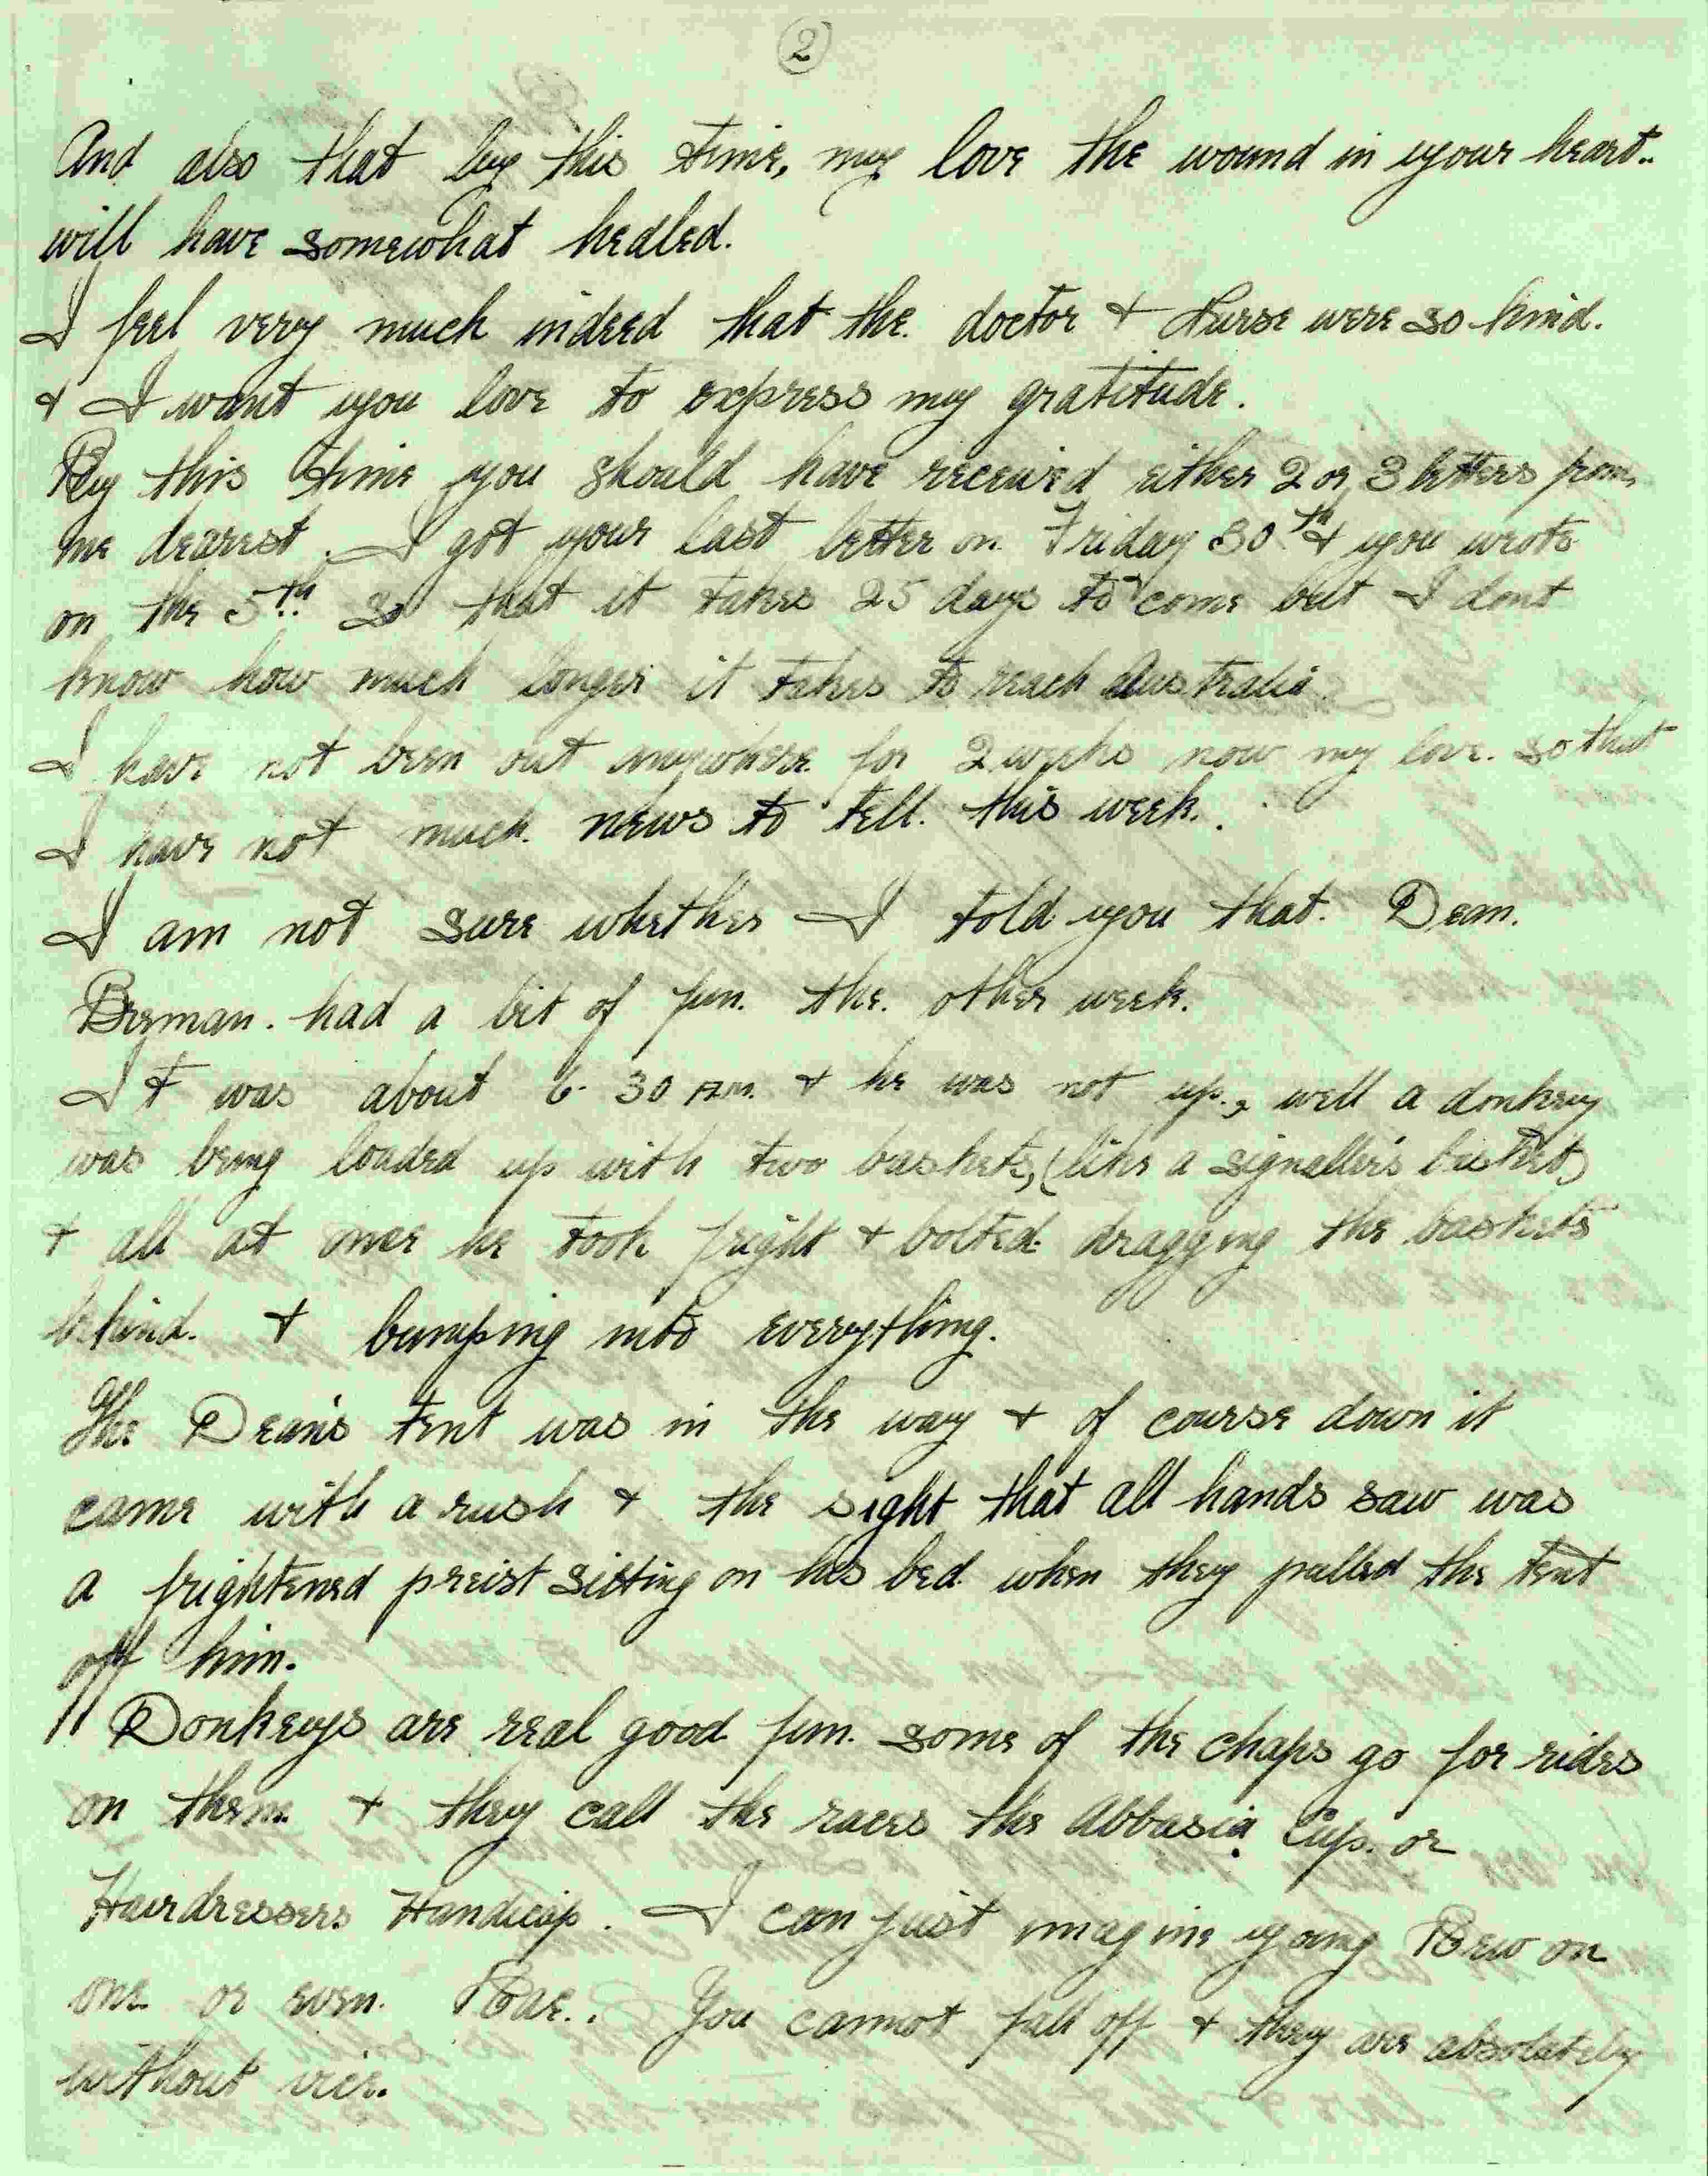 2
And also that by this time, my love the wound in your heart..
will have somewhat healed.
I feel very much indeed that the. doctor + Nurse were so kind.
+ I want you love to express my gratitude.
By this time you should have received either 2 or 3 letters from
me dearest. I got your last letter on Friday 30th + you wrote
on the 5th so that it takes 25 days to come but I dont
know how much longer it takes to reach Australia
I have not been out anywhere for 2 weeks now my love. so that
I have not much. news to tell. this week..
I am not sure whether I told you that. Dean.
Berman. had a bit of fun. the. other week.
It was about 6.30 AM. + he was not up., well a donkey
was being loaded up with two baskets, (like a signaller's basket)
+ all at once he took fright + bolted. dragging the baskets
behind. + bumping into everything.
The Dean's tent was in the way + of course down it
came with a rush + the sight that all hands saw was
a frightened preist sitting on his bed. when they pulled the tent
off him.
Donkeys are real good fun. some of the chaps go for rides
on them. + they call the races the Abbasia. Cup. or
Hairdressers Handicap. I can just imagine young Bew on
one or even. Rae.. You cannot fall off + they are absolutely
without vice.